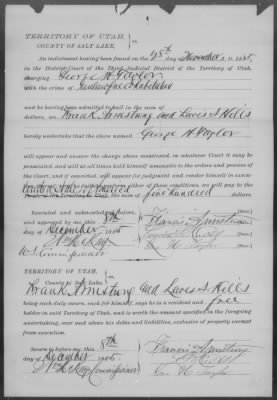 TERRITORY OF UTAH,
COUNTY OF SALT LAKE.
An indictment having been found on the day of December A. D. 1885,
in the District Court of the Third Judicial District of the Territory of Utah,
charging George H Taylor
with the crime of Unlawful Cohabitation
and he having been admitted to bail in the sum of
dollars, we Frank Armstrong and Lewis S Hills
hereby undertake that the above named George H Taylor
will appear and answer the charge above mentioned, in whatever Court it may be
prosecuted, and will at all times hold himself amenable to the orders and process of
the Court, and if convicted, will appear for judgment and render himself in execu-
tion thereof, or if he fail to perform either of these conditions, we will pay to the
People of the the sum of five hundred dollars.
Executed and acknowledged before
and approved by me this 8th
day of December 1885
Wm McKay
U.S. Commissioner
Francis Armstrong
L. S. Hills
Geo. H. Taylor
TERRITORY OF UTAH,
County of Salt Lake.
Frank Armstrong and Lewis S. Hills
being each duly sworn, each for himself, says he is a resident and free
holder in said Territory of Utah, and is worth the amount specified in the foregoing
undertaking, over and above his debts and liabilities, exclusive of property exempt
from execution.
Sworn to before me, this 8th
day of December 1885.
Wm McKay Commissioner
Francis Armstrong
L. S. Hills
Geo. H. Taylor